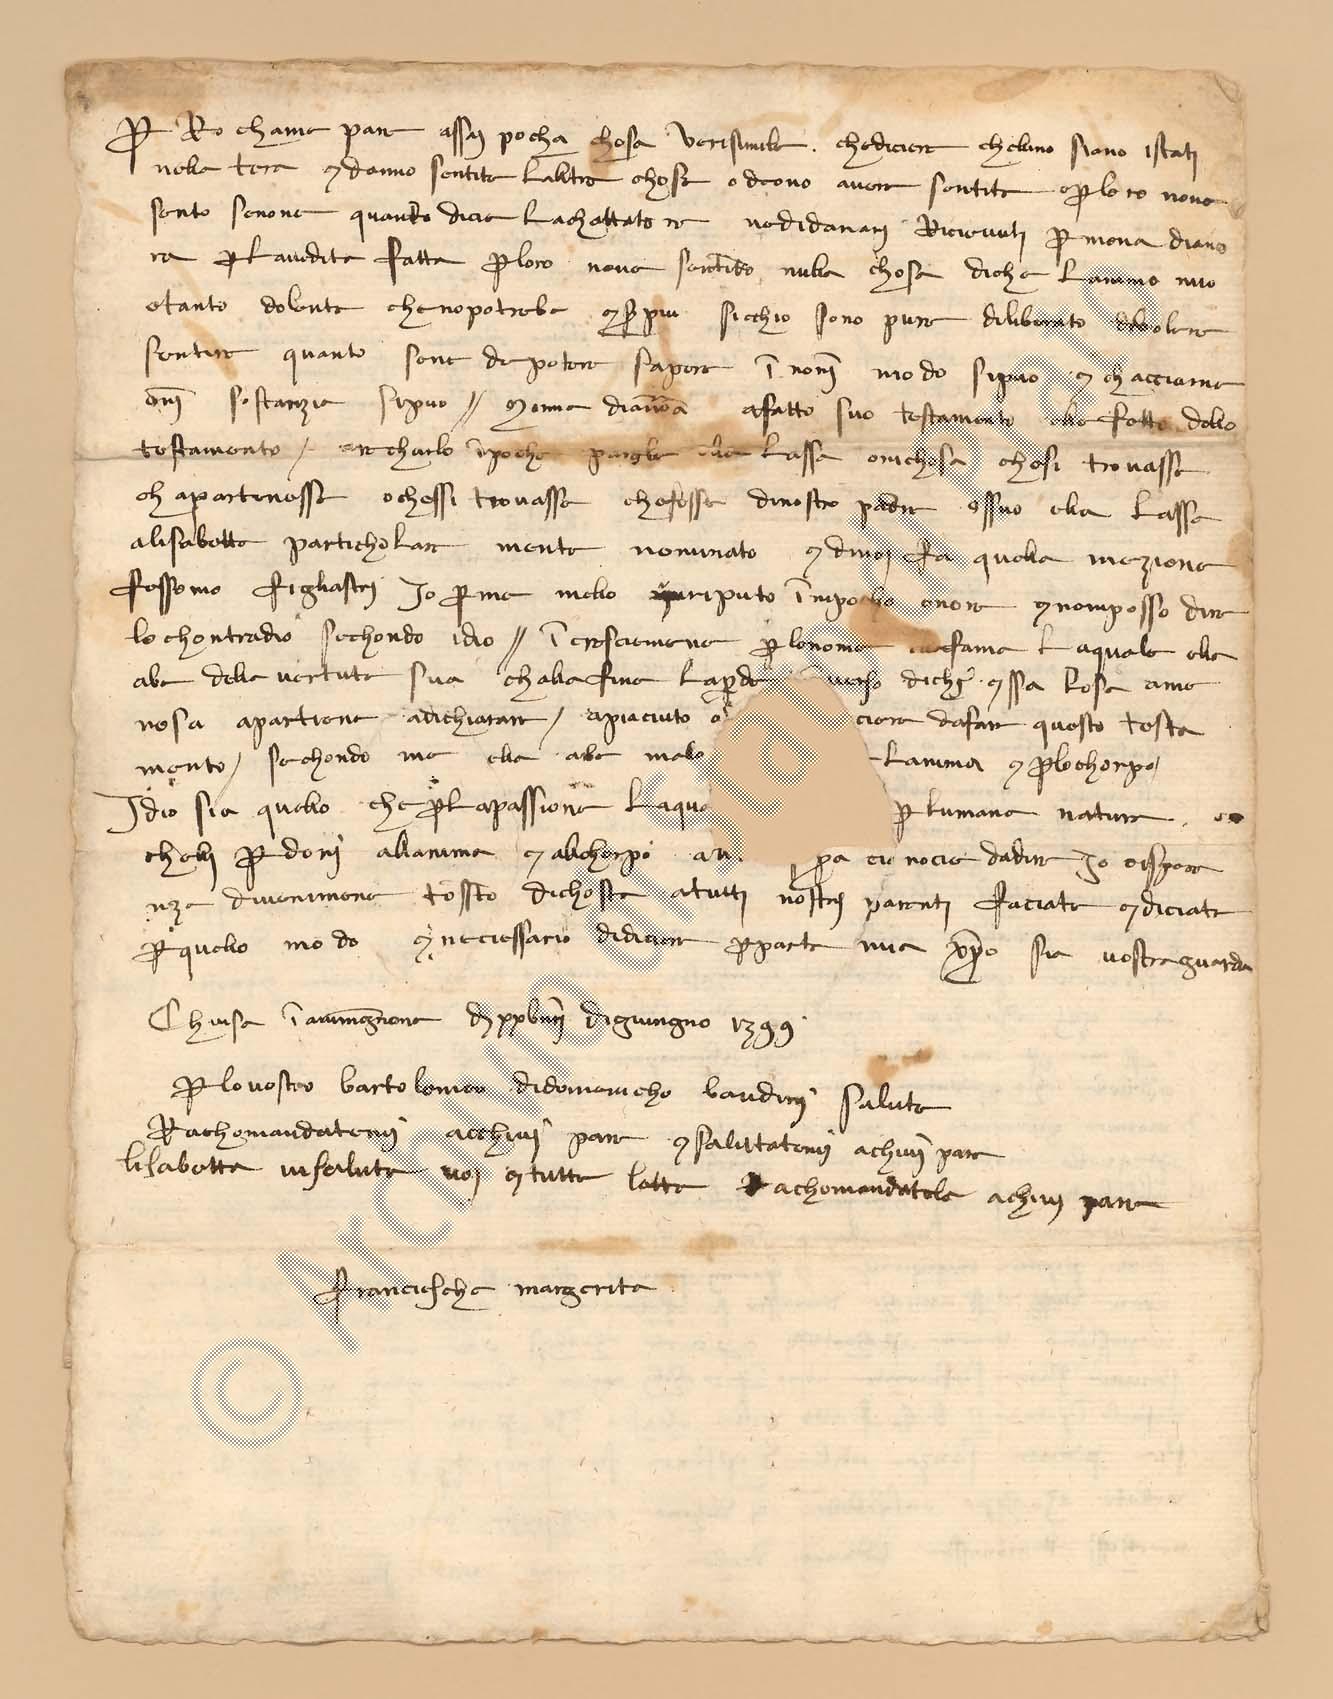 P Ro chame pare assai pocha chosa verisimile. chediciere chelino siano istati
nella tera e danno sentite laltre chose e deono avere sentite e p loro none
sento senone quando dicie lachattatore nedidanari Ricievuti p mona diano
ra p laudita fatta p loro none sentendo nulla chosa diche lanimo mio
etanto dolente chenopotrebe esser piu sicchio sono pure diliberato divolere
sentire quanto sene de potere sapere i nonī modo sipuo e chacciarne
onī sostanzia sipuo // Monna dianora a fatto suo testamento ella fatto dello
testamento / recharlo ī poche parole ella lassa onichosa chosi trovasse
ch apartenesse o chessi trovasse chefosse dinostro padre o ssuo ella lassa
alisabetta partichōlare mente nominato e dinoi fa quella menzione
fossomo figliastri Io p me mello riputo ī mpocho onore e nomposso dire
lo chontradio sechondo idio // ī cresciemene p lonome fama laquale ella
abe della vertute sua challa fine la p de verso dichi essa losa ame
nosa apartiene adichiarare / apiaciuto ciere dafare questo testa
mento / sechondo me ella abe malo lanima e p lochorpo /
Idio sia quello che p lapassione laqua p lumana natura. e
chelli p doni allanima e alchorpo Io e isper
nza divenirmene tossto dichosta atutti nostri parenti faciate e diciate
p quello modo e neciessario didiciere p parte mia xpo sia vostraguarda
Chiusa ī avingnone dì xxviiii digiungno 1399
P lovostro bartolomeo didomenicho bandini salute
Rachomandatemi acchivi pare e salutatemi achivi pare
lisabetta visaluta voi e tutte latre Rachomandatela achivi pare
Franciescha margerita
© Archivio di Stato di Prato